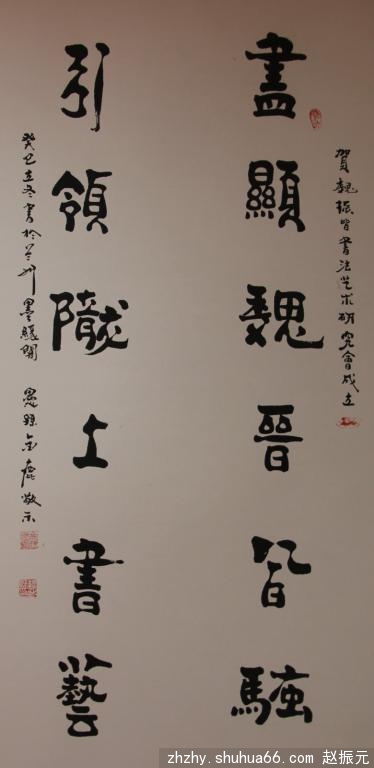 賀魏振皆書法艺术研究會成立
盡顯魏晉皆騷
引領隴上書藝
癸巳立冬書於兰州墨緣閣 敬示
zhzhy.shuhua66.com 赵振元